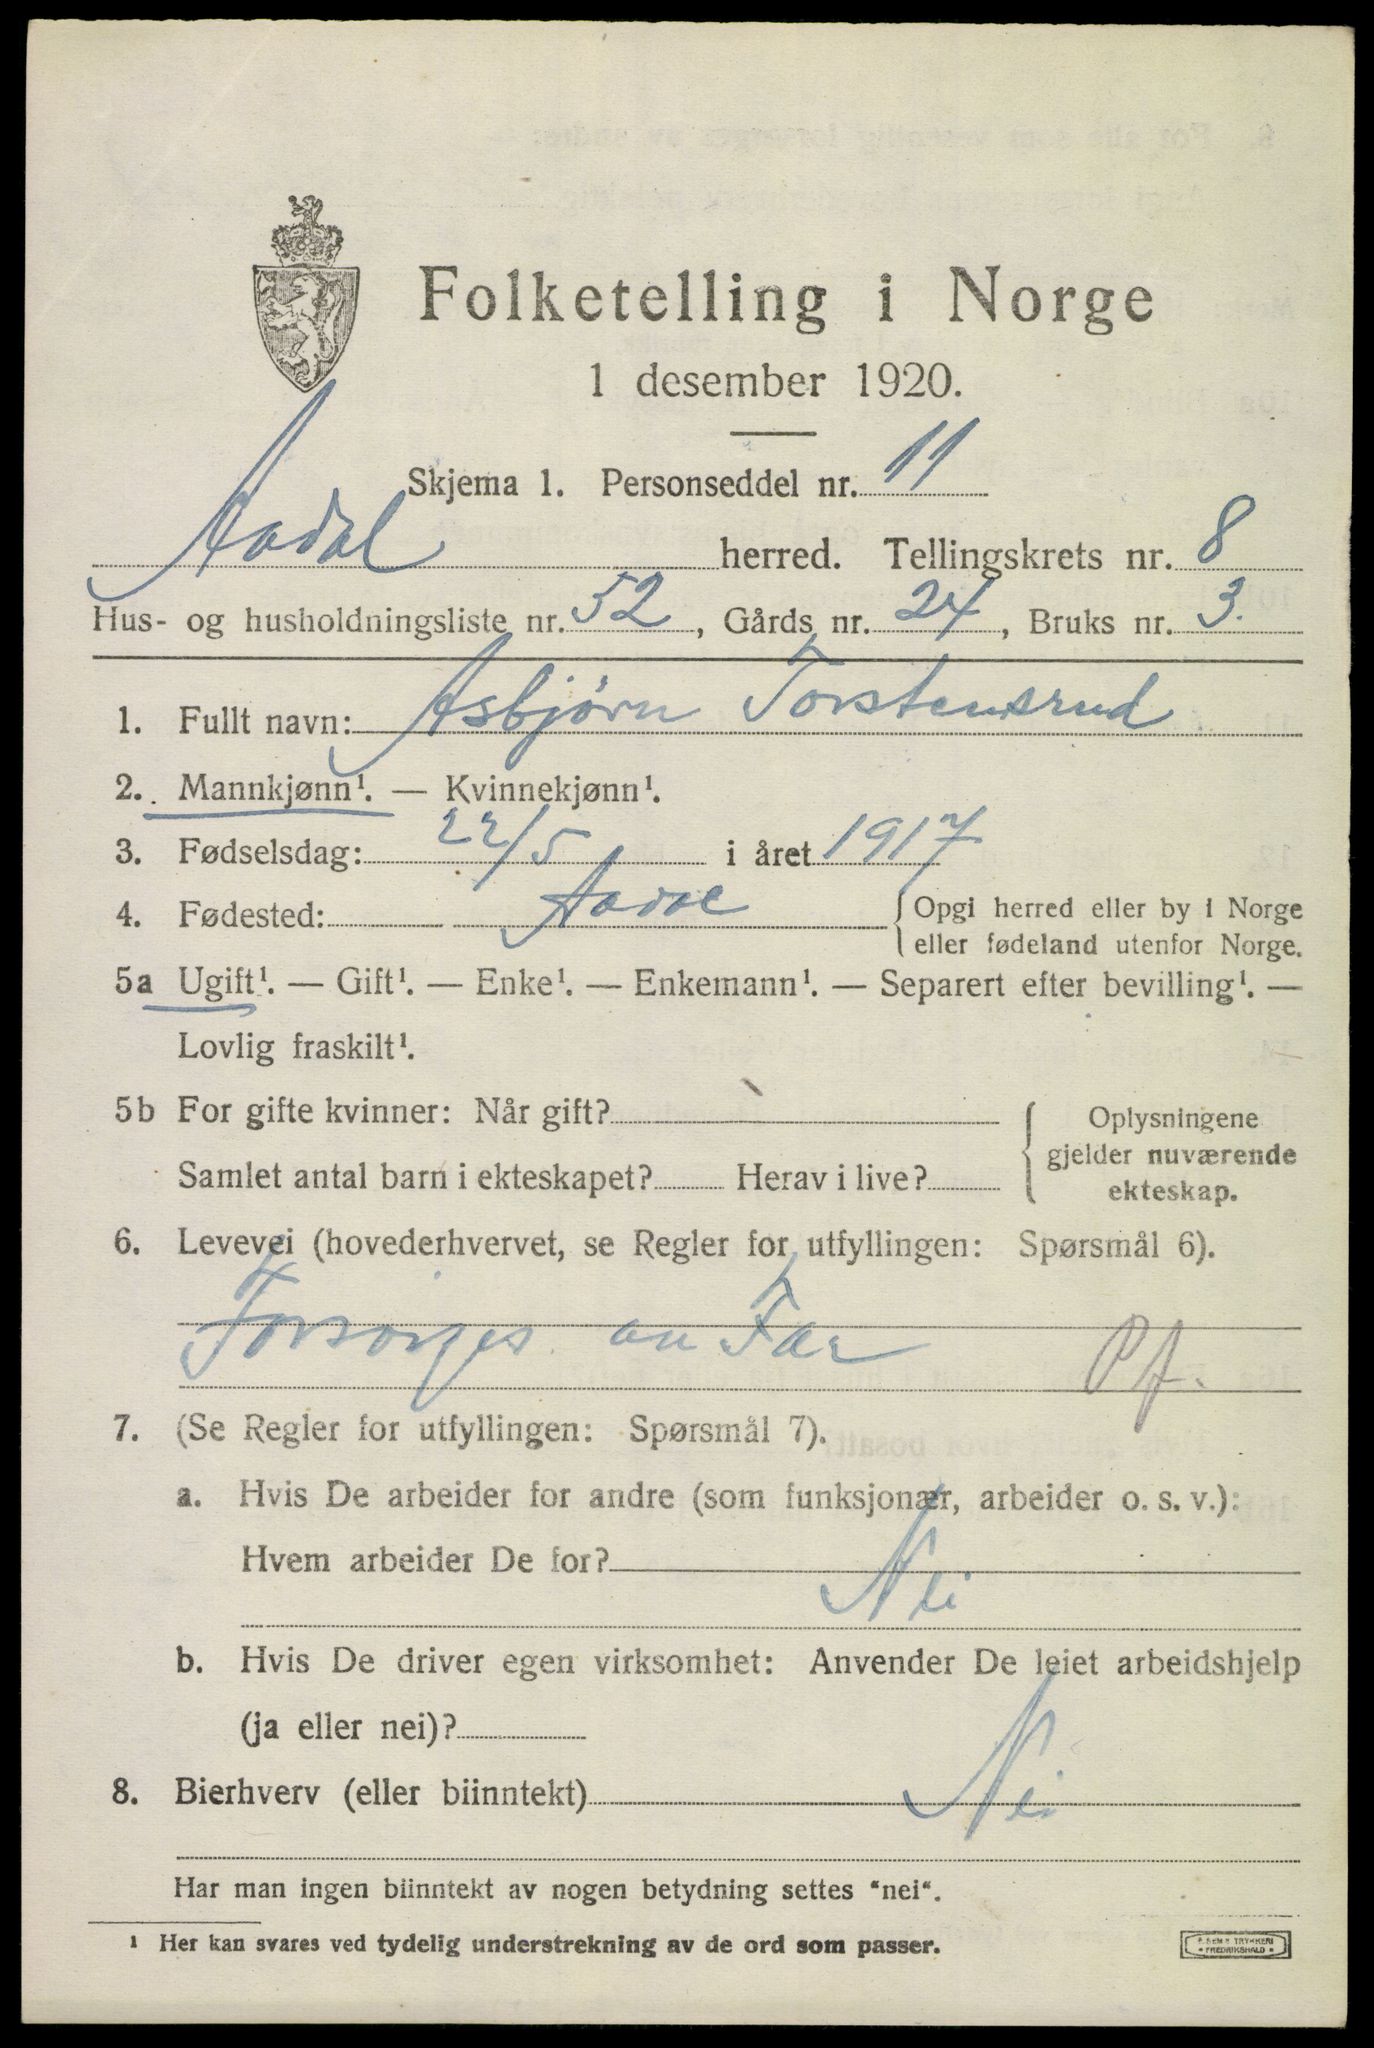 Folketelling i Norge
1 desember 1920.
Skjema 1. Personseddel nr. 11
Aadal herred. Tellingskrets nr. 8
Hus- og husholdningsliste nr. 52, Gårds nr. 24, Bruks nr. 3.
1. Fullt navn: Asbjörn Torstensrud
2. Mannkjønn¹. — Kvinnekjønn¹.
3. Fødselsdag: 22/5 i året 1917
4. Fødested: Aadal { Opgi herred eller by i Norge
eller fødeland utenfor Norge.
5a Ugift¹. — Gift¹. — Enke¹. — Enkemann¹. — Separert efter bevilling¹. —
Lovlig fraskilt¹.
5b For gifte kvinner: Når gift?
Samlet antal barn i ekteskapet? Herav i live?
{ Oplysningene
gjelder nuværende
ekteskap.
6. Levevei (hovederhvervet, se Regler for utfyllingen: Spørsmål 6).
Forsorges av Far Pf.
7. (Se Regler for utfyllingen: Spørsmål 7).
a. Hvis De arbeider for andre (som funksjonær, arbeider o. s. v.):
Hvem arbeider De for?
Nei
b. Hvis De driver egen virksomhet: Anvender De leiet arbeidshjelp
(ja eller nei)?
8. Bierhverv (eller biinntekt) Nei
Har man ingen biinntekt av nogen betydning settes "nei".
¹ Her kan svares ved tydelig understrekning av de ord som passer.
TRYKKERI
FREDRIKSHALD